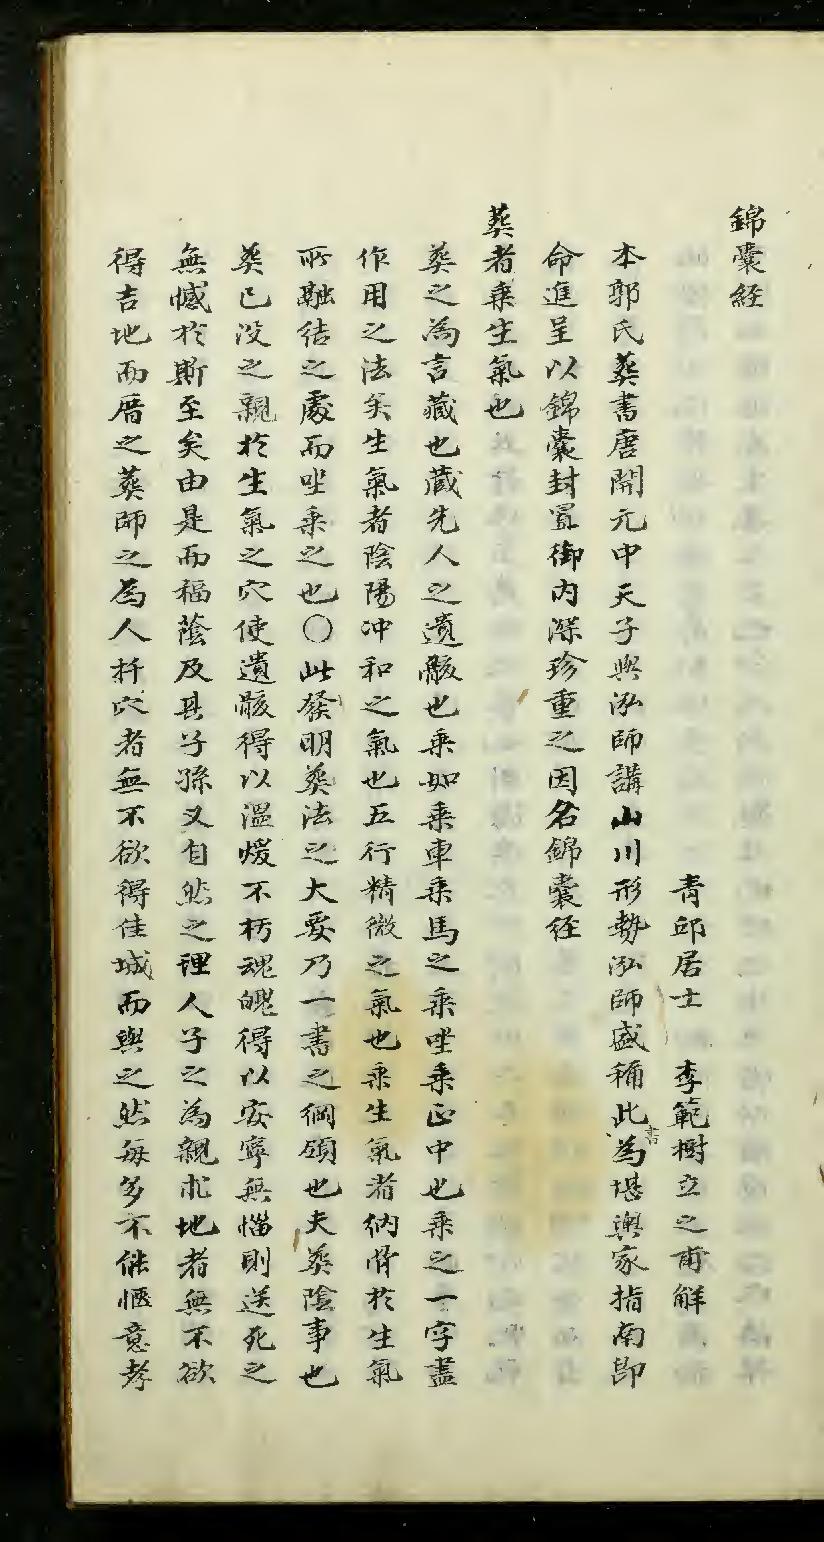 錦囊経
青邱居士 李範樹立之甫解
本郭氏葬書唐開元中天子與泓師講山川形勢泓師盛稱此書為堪輿家指南卽
命進呈以錦囊封置御内深珍重之因名錦囊経
葬者乘生氣也
葬之為言藏也藏先人之遺骸也乘如乘車乘馬之乘坐乘正中也乘之一字盡
作用之法矣生氣者陰陽冲和之氣也五行精微之氣也乘生氣者納骨於生氣
所融结之處而坐乘之也〇此發明葬法之大要乃一書之綱領也夫葬陰事也
葬已没之親於生氣之穴使遺骸得以温煖不朽魂魄得以安寧無惱則送死之
無憾於斯至矣由是而福蔭及其子孫又自然之理人子之為親求地者無不欲
得吉地而厝之葬師之為人扦穴者無不欲得佳城而與之然每多不能愜意孝